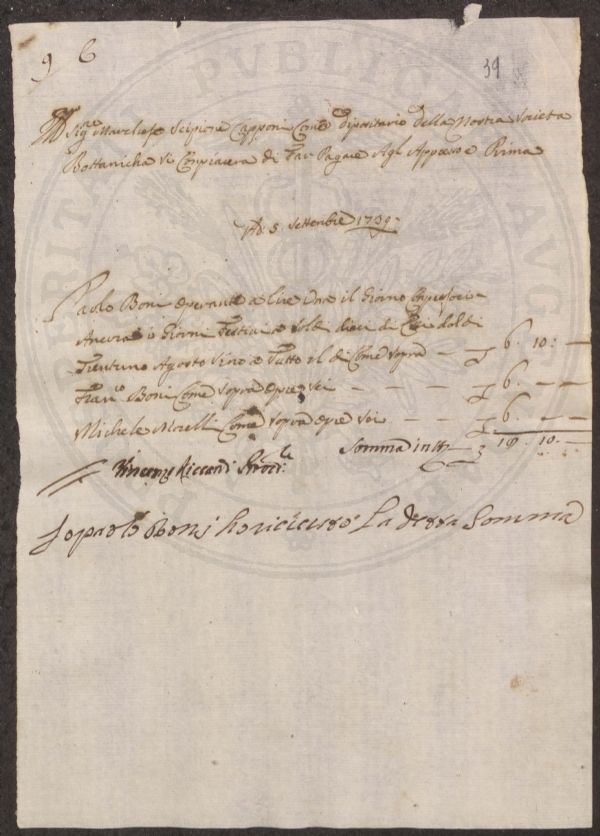 9 6
39
Sig.e Marchese Scipione Capponi Come Dipositario Della Nostra Società
Bottanicha Si Compiacerà di Far Pagare Agl Appresso e Prima
Ad: 5 Settenbre 1739
Paolo Boni Operante a lire Una il Giorno Compresoci
Ancora i Giorni Festivi a Soldi dieci di
Trentuno Agosto Sino a Tutto il dì Come Sopra — 6. 10: —
Fran.co Boni Come Sopra opre Sei — 6. — —
Michele Morelli Come Sopra opre Sei — 6. — —
Somma in tt.o — 18. 10. —
Vincenzo Riccardi
Io paolo Boni ho riceuto La detta Somma